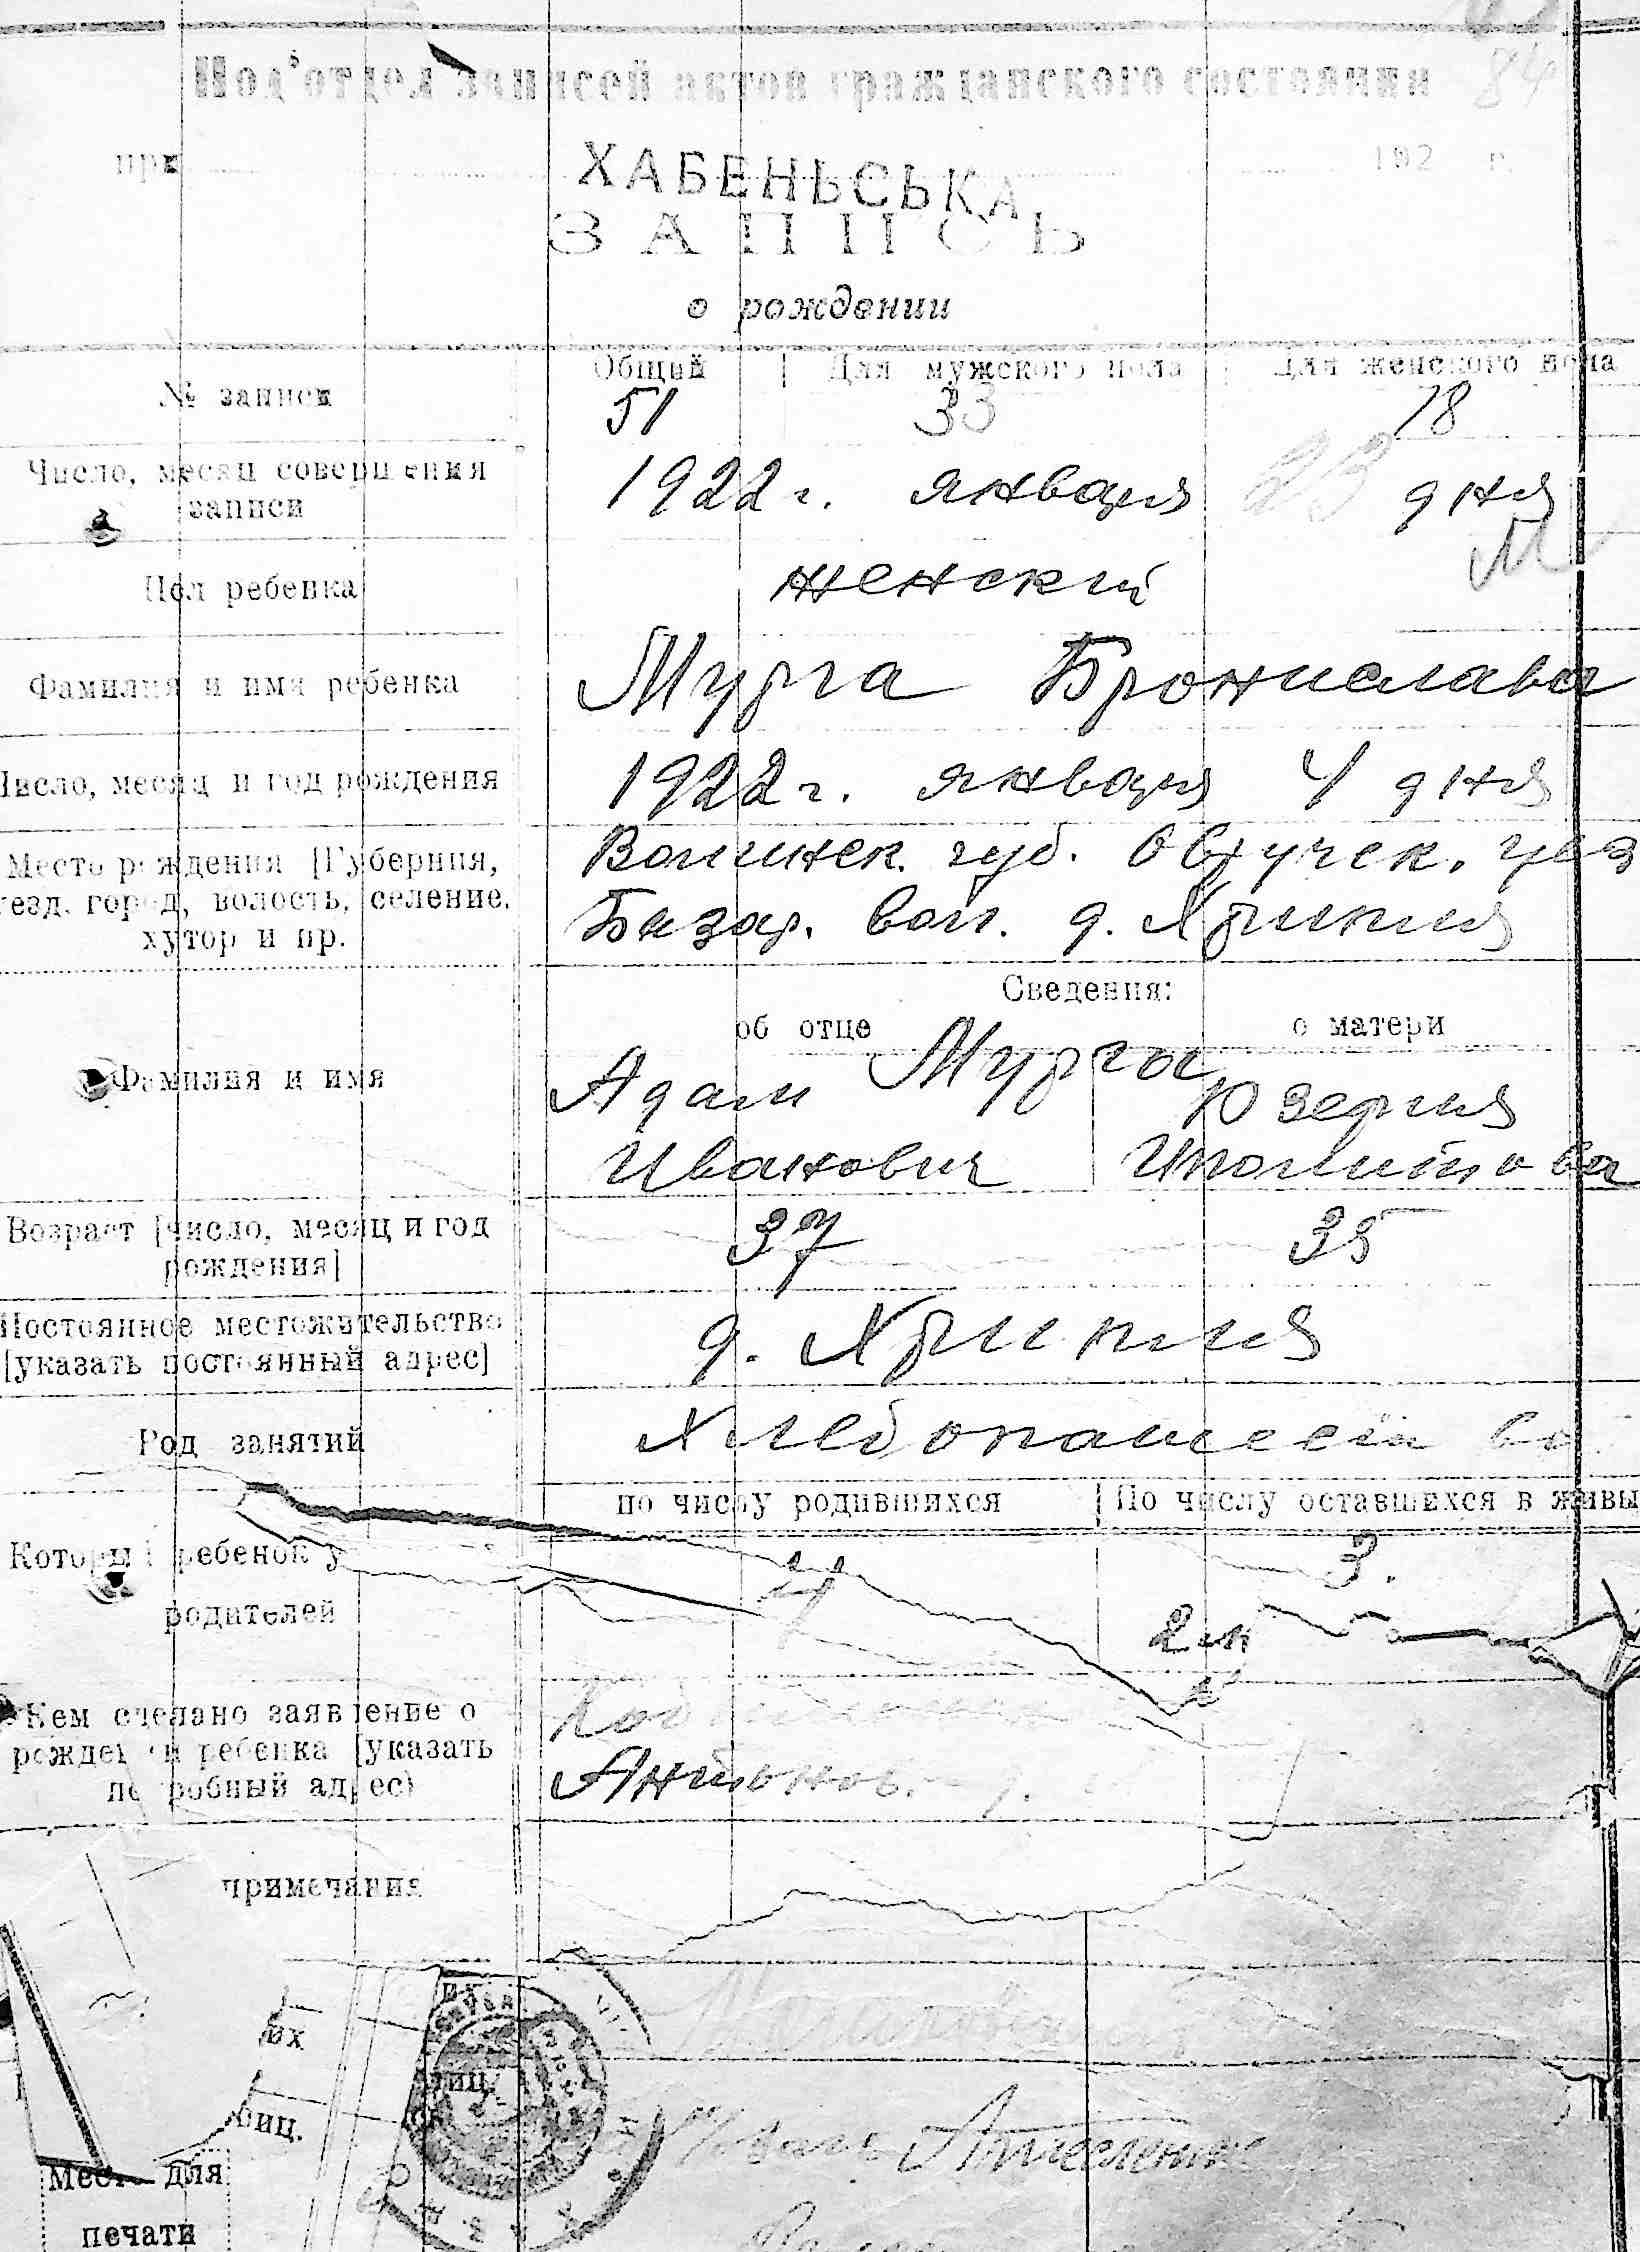 Под'отдел записей актов гражданского состояния 84
при 192 г.
ХАБЕНЬСЬКА
ЗАПИСЬ
о рождении
Общий Для мужского пола Для женского пола
№ записи 51 33 18
Число, месяц совершения записи 1922 г. января 23 дня
М
Пол ребенка женский
Фамилия и имя ребенка Мурга Бронислава
Число, месяц и год рождения 1922 г. января 4 дня
Место рождения [Губерния, Волинск. губ. Овручск. уез
уезд, город, волость, селение, Базар. вол. д. Хрипля
хутор и пр.
Сведения:
об отце о матери
Мурга
Фамилия и имя Адам Юзефия
Иванович Иполитова
Возраст [число, месяц и год рождения] 37 35
Постоянное местожительство [указать постоянный адрес] д. Хрипля
Род занятий Хлебопашеств
по числу родившихся По числу оставшихся в живы
Который ребенок у родителей 4 3.
2 л
Кем сделано заявление о
рождении ребенка [указать Антонов.
подробный адрес)
примечания
их
лиц.
Место для
печати